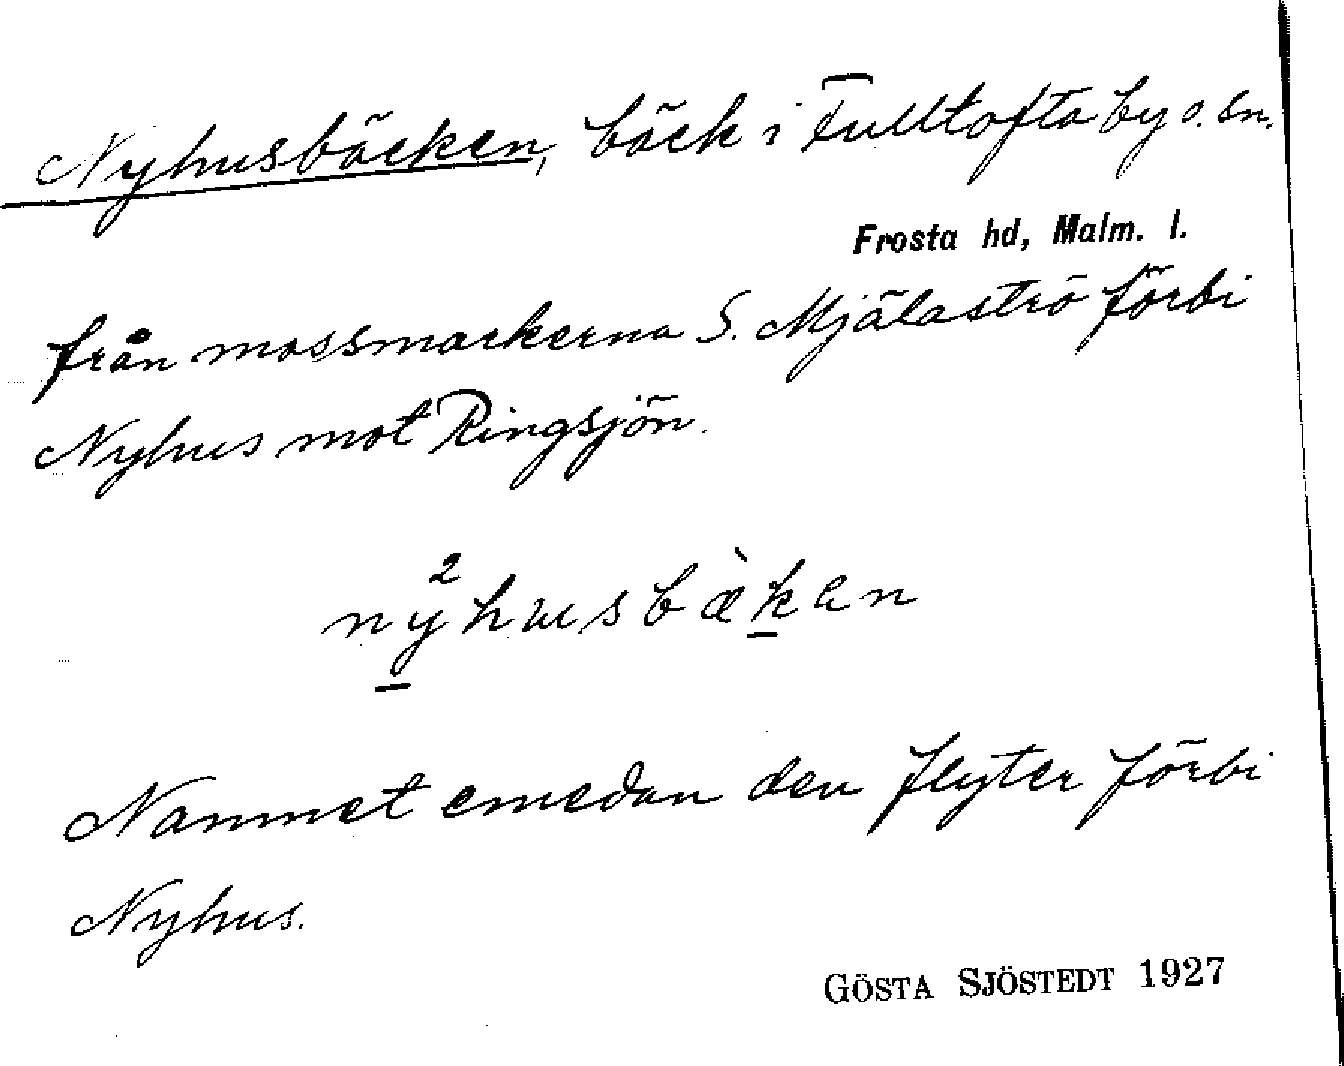 Nyhusbäcken, bäck i Fulltofta by o. sn.
Frosta hd, Malm. l.
från mossmarkerna S. Mjälaströ förbi
Nyhus mot Ringsjön.
ný²husbæ̀kan
Namnet emedan den flyter förbi
Nyhus.
GÖSTA SJÖSTEDT 1927